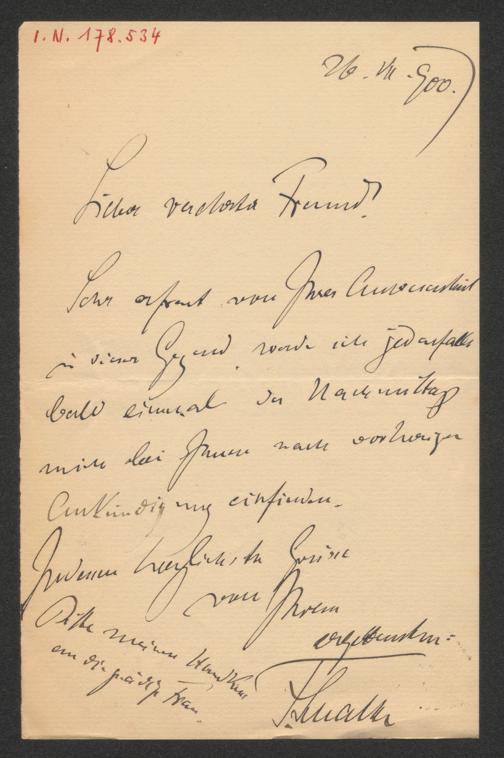 I.N. 178.534
26. VII. 900.
Lieber verehrter Freund!
Sehr erfreut von Ihrer Anwesenheit
in dieser Gegend, werde ich jedenfalls
bald einmal des Nachmittags
mich bei Ihnen nach vorheriger
Ankündigung einfinden.
Indessen herzlichste Grüsse
von Ihrem
ergebensten
Bitte meinen Handkuss
an die gnädige Frau.